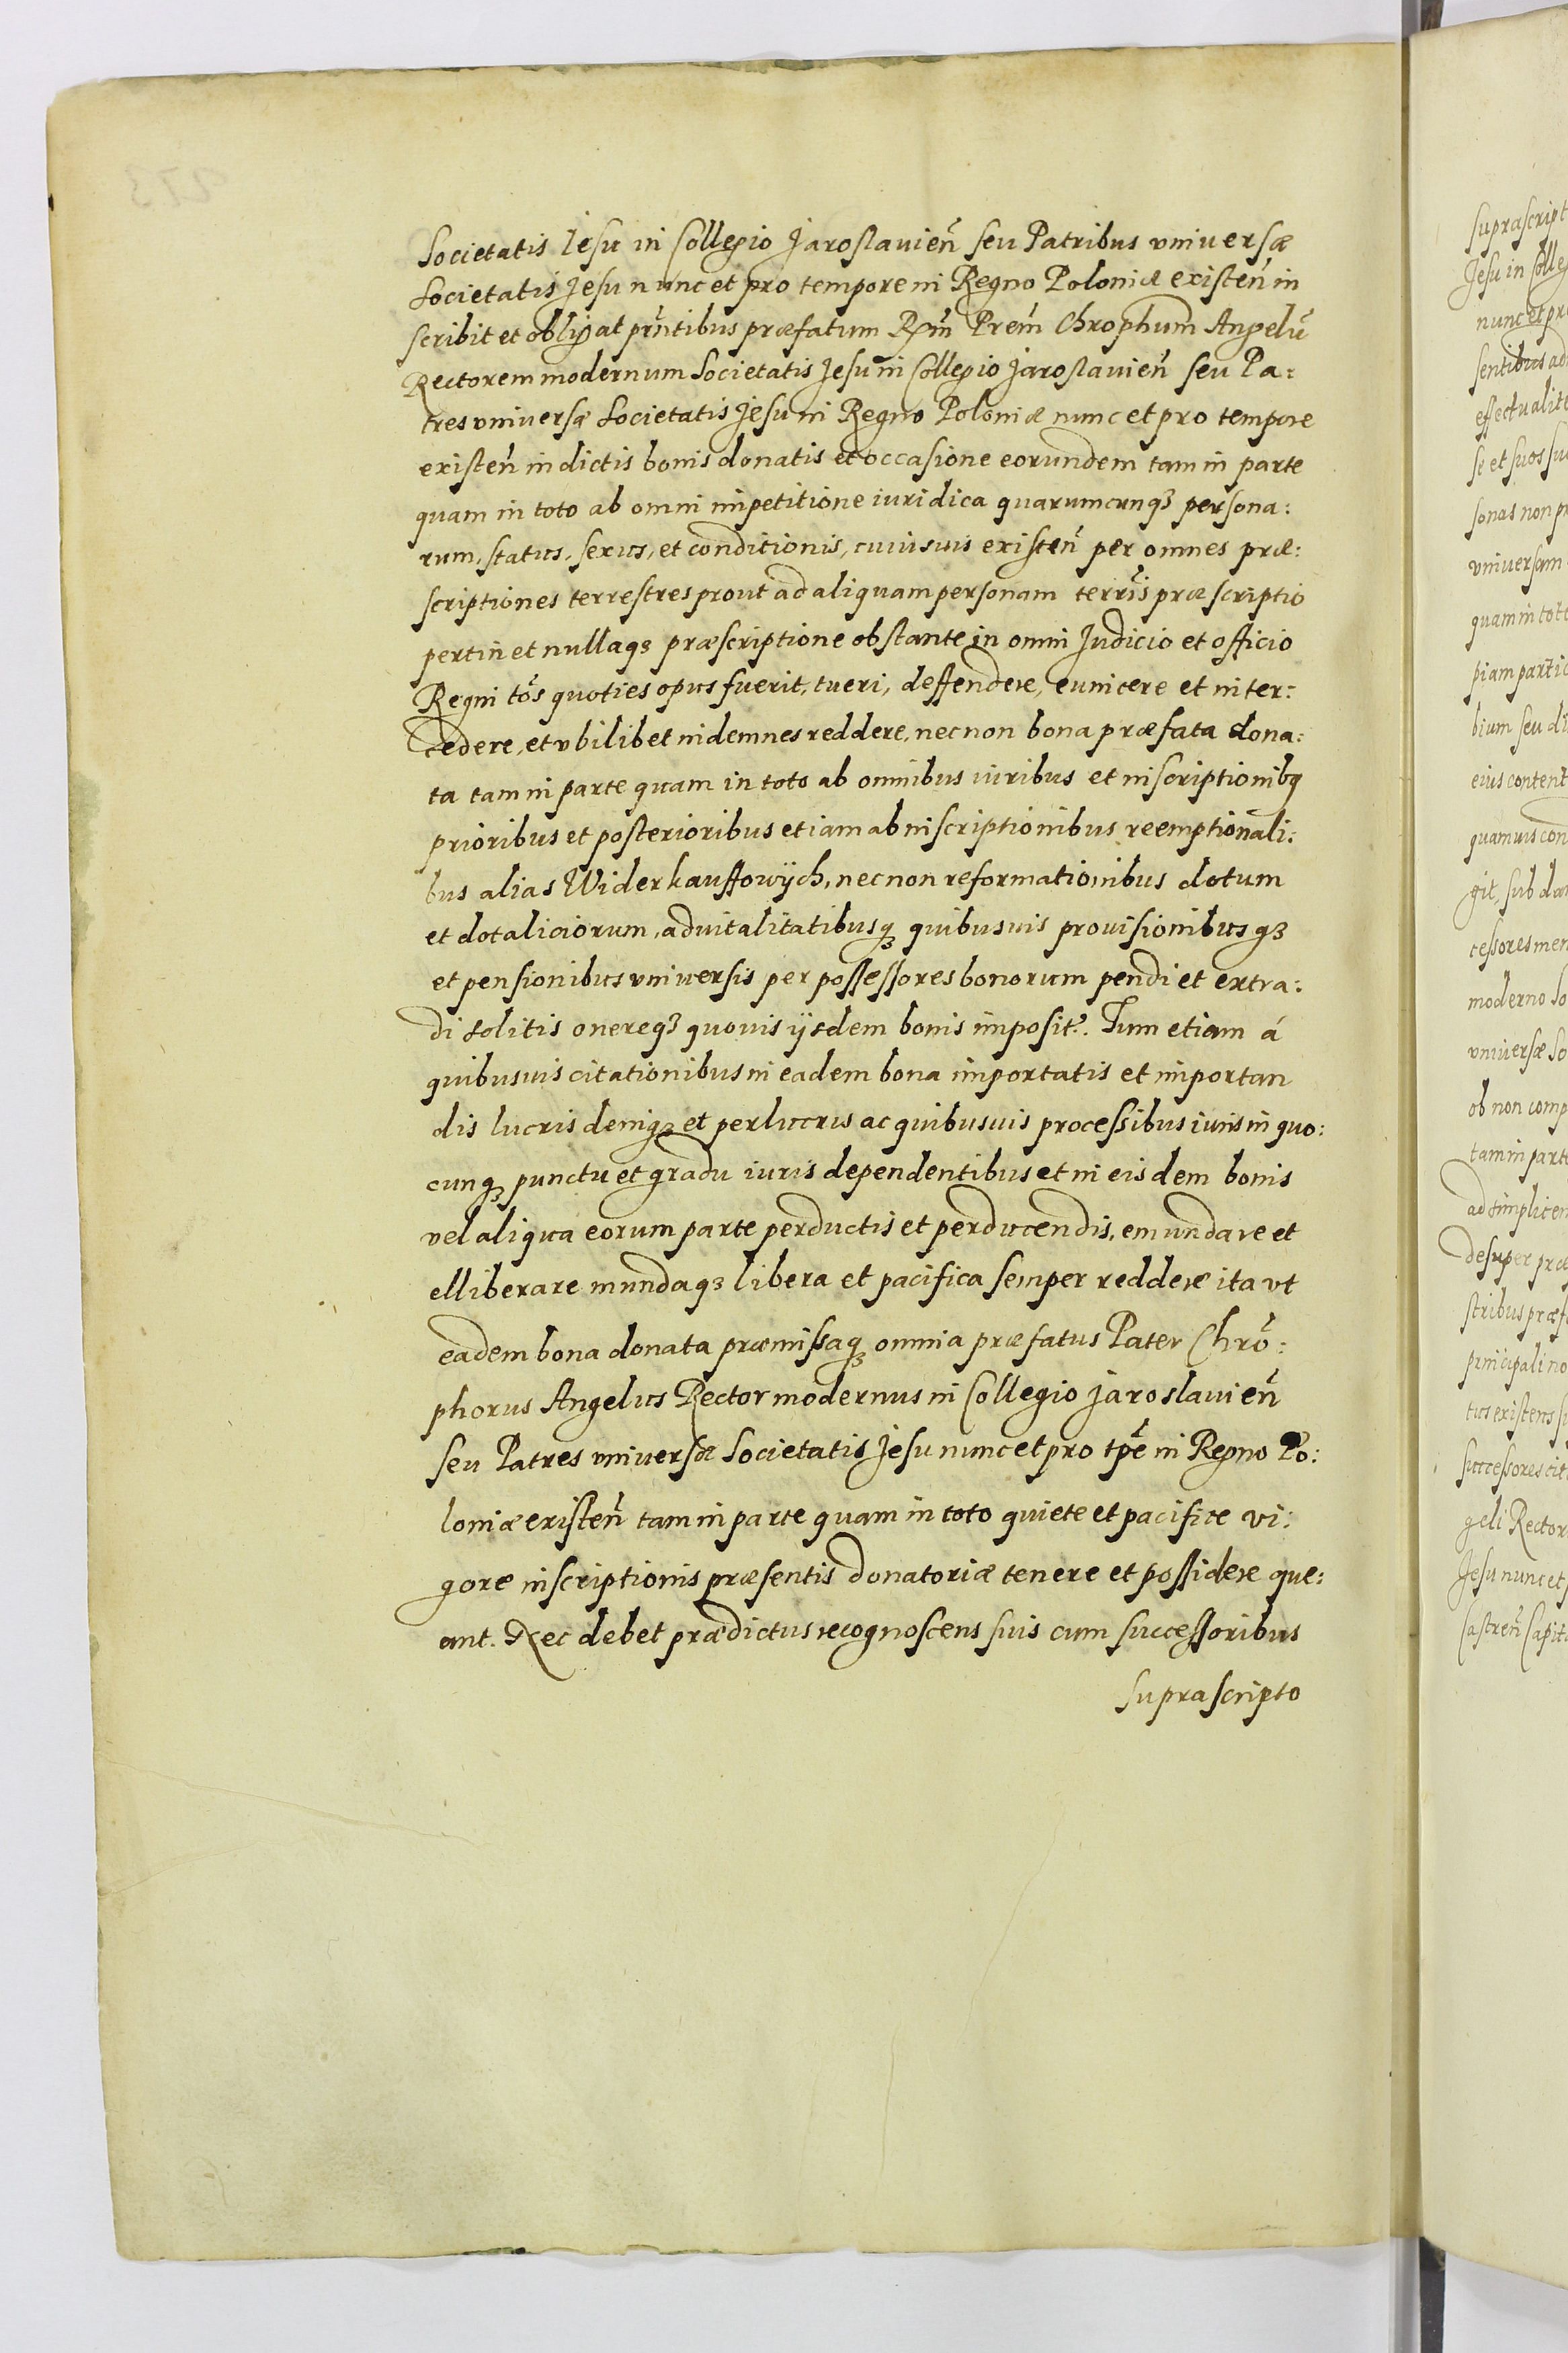 Societatis Iesu in Collegio Jaroslauień seu Patribus vniversæ
Societatis Jesu nunc et pro tempore in Regno Poloniæ existeń in
scribit et obligat prńtibus præfatum Rm̃ Prem̃ Chrophum Angelũ
Rectorem modernum Societatis Jesu in Collegio Jaroslauień seu Pa:
tres vniversæ Societatis Jesu in Regno Poloniæ nunc et pro tempore
existeń in dictis bonis donatis et occasione eorundem tam in parte
quam in toto ab omni impetitione iuridica quarumcunqꝫ persona:
rum, status, sexus, et conditionis, cuiusuis existeń per omnes præ:
scriptiones terrestres prout ad aliquam personam terrĩs præscriptio
pertinet nullaqꝫ præscriptione obstante in omni Judicio et officio
Regni tõs quoties opus fuerit, tueri, deffendere, euincere et inter:
cedere, et vbilibet indemnes reddere, necnon bona præfata dona:
ta tam in parte quam in toto ab omnibus iuribus et inscriptionibꝫ
prioribus et posterioribus etiam ab inscriptionibus reemptionali:
bus alias Widerkauffowÿch, necnon reformationibus dotum
et dotaliciorum, aduitalitatibusqꝫ quibusuis prouisionibusqꝫ
et pensionibus vniuersis per possessores bonorum pendi et extra:
di solitis onereqꝫ quouis ijsdem bonis imposit̃. Tum etiam á
quibusuis citationibus in eadem bona importatis et importan
dis lucris deniqꝫ et perlucris ac quibusuis processibus iuris in quo:
cunqꝫ punctu et gradu iuris dependentibus et in eisdem bonis
vel aliqua eorum parte perductis et perducendis, emundare et
elliberare mundaqꝫ libera et pacifica semper reddere ita vt
eadem bona donata præmissaqꝫ omnia præfatus Pater Chrõ:
phorus Angelus Rector modernus in Collegio Jaroslauień
seu Patres vniversæ Societatis Jesu nunc et pro tp̃e in Regno Po:
loniæ existeń tam in parte quam in toto quiete et pacifice vi:
gore inscriptionis præsentis donatoriæ tenere et possidere que:
ant. Nec debet prædictus recognoscens suis cum successoribus
suprascripto
suprascript
Jesu in Colle
nunc et pr
sentibus ad
effectualit
se et suos su
sonas non p
vniuersam
quam in tot
piam partic
bium seu di
eius content
quamuis con
git, sub da
cessores mem
moderno So
vniuersæ So
ob non comp
tam in part
ad simplicem
desuper præ
stribus præf
principali no
tus existens s
successores cit
geli Rector
Jesu nunc et p
Castreń Capit